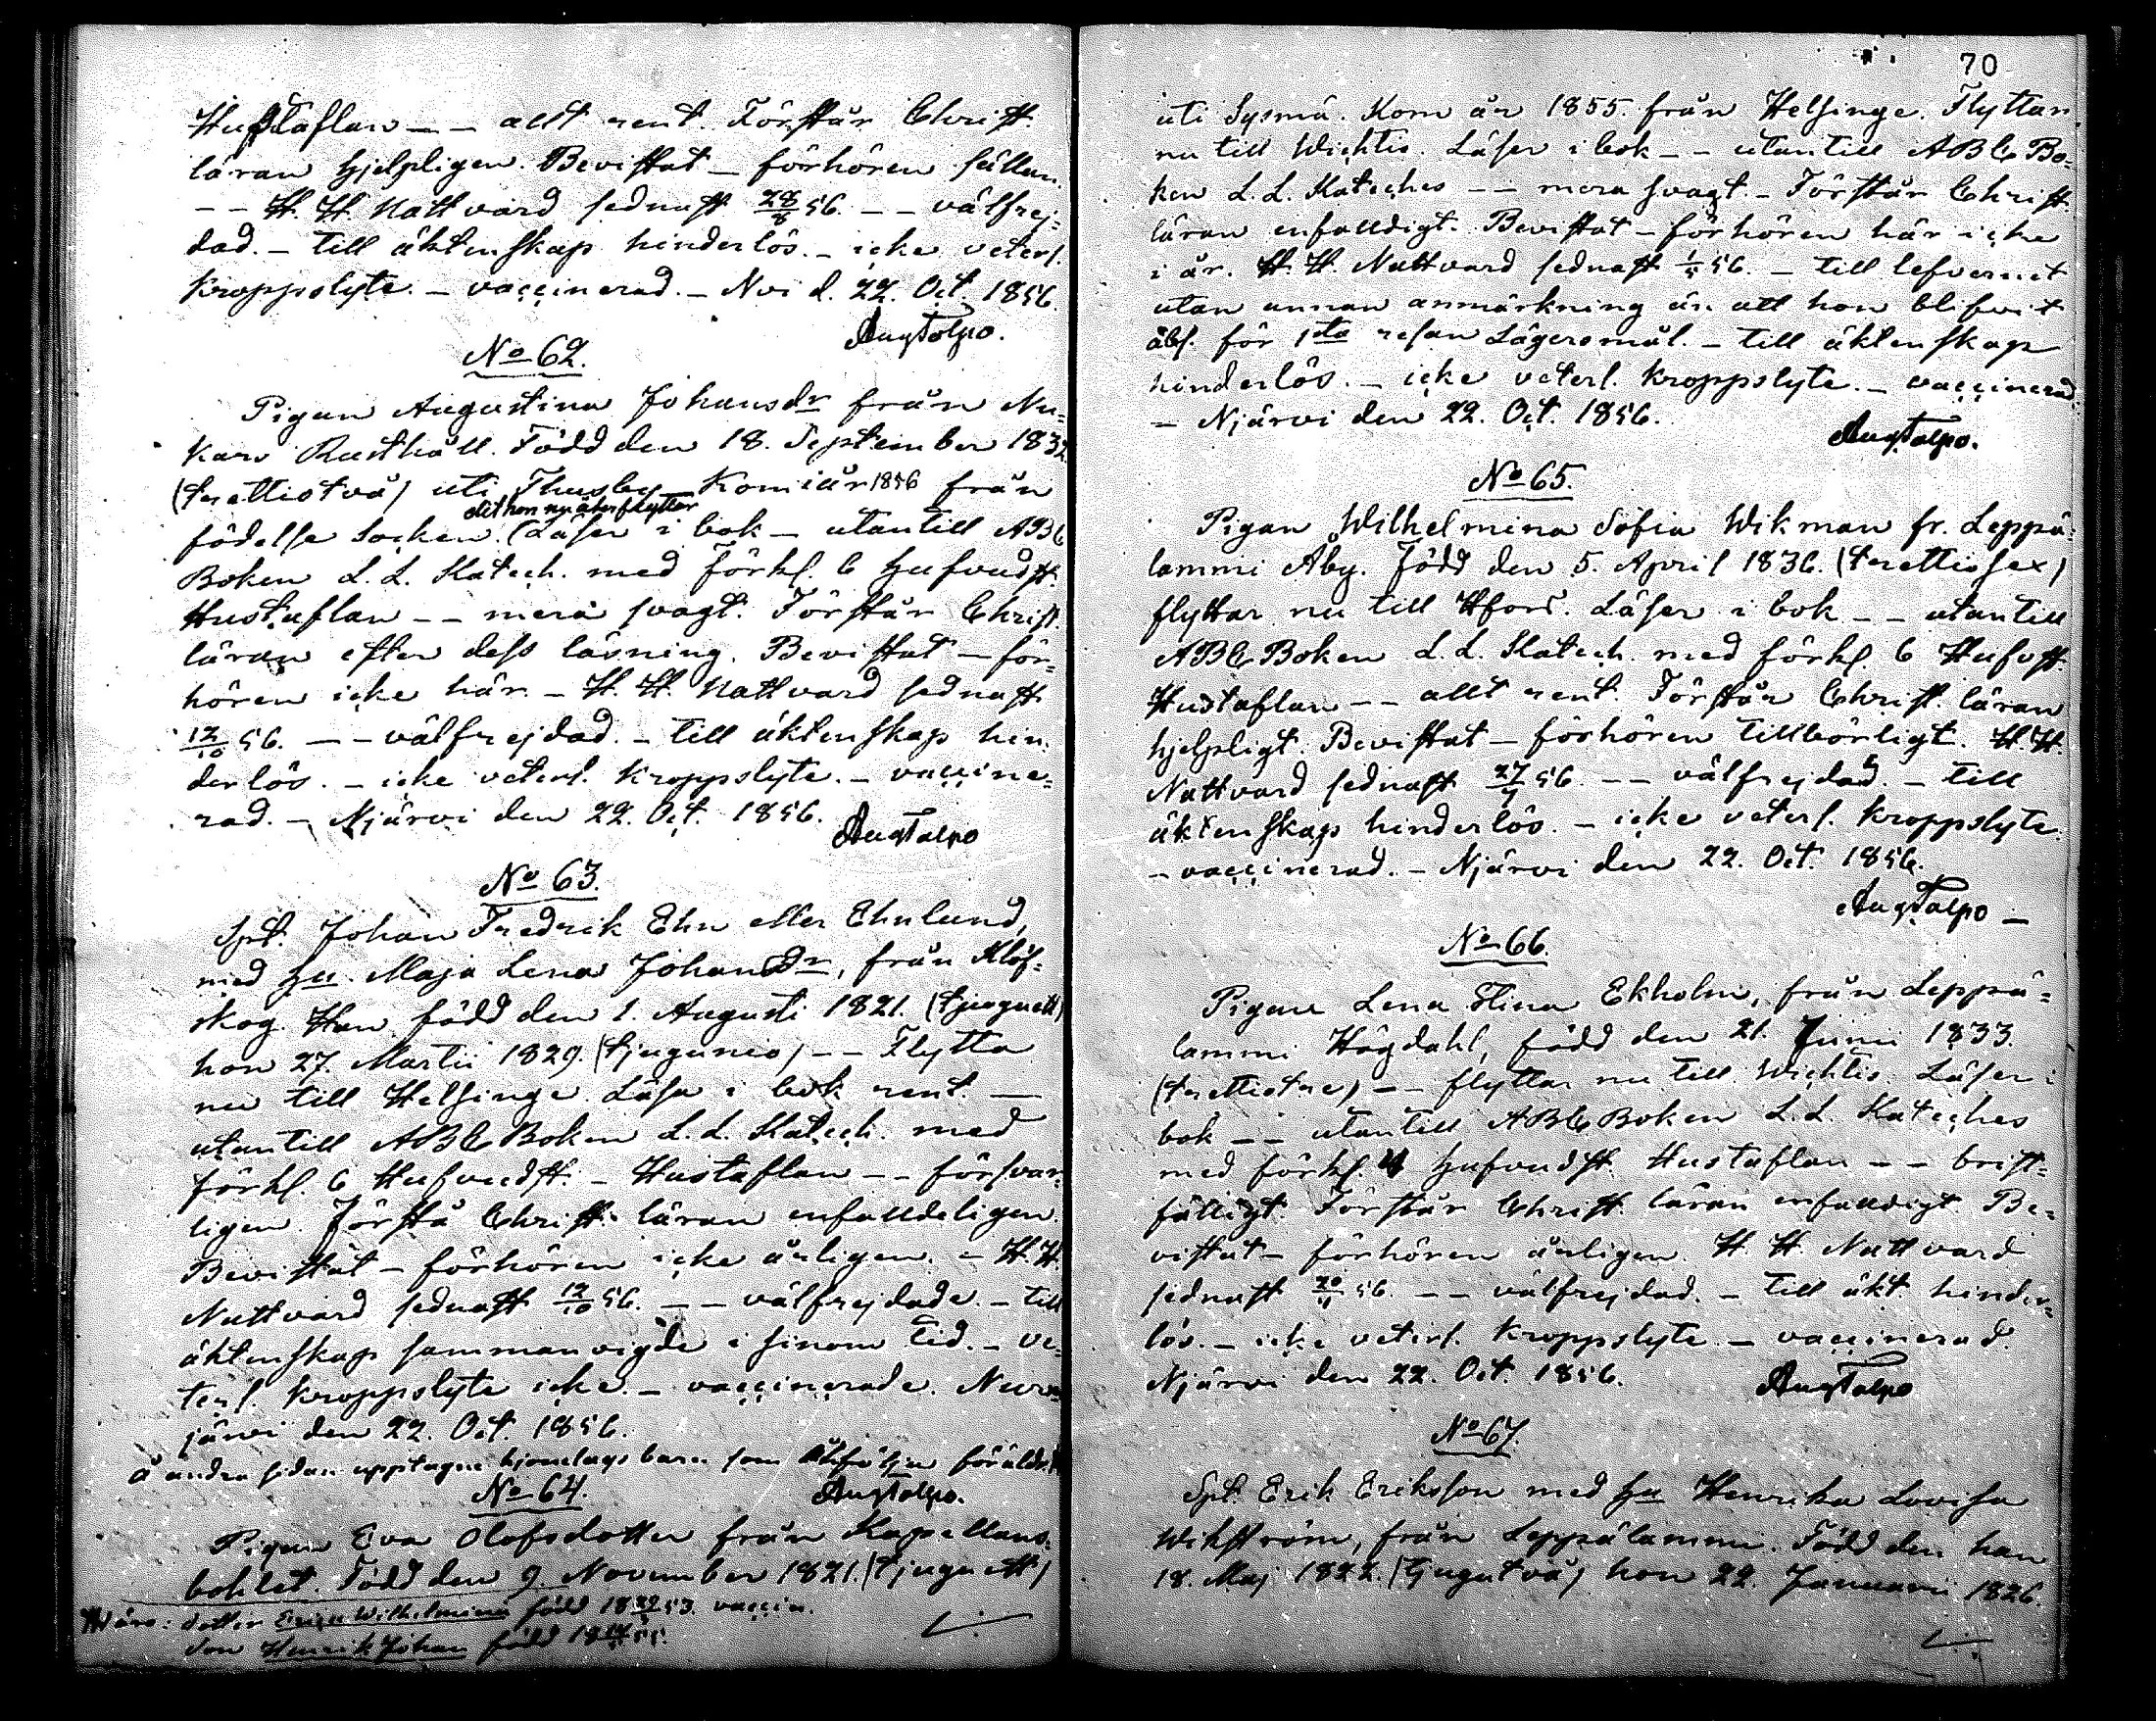 Hustaflan – – allt rent. Förstår Christ.
läran hjelpligen. Bevistat – förhören sällan.
– – H. H. Nattvard sednast 28/8 56. – – välfrej-
dad. – till äktenskap hinderlös. – icke veterl.
kroppslyte. – vaccinerad. – Nvi d. 22. Oct. 1856.
AugTolpo.
No 62.
Pigan Augustina Johansdr från Nu-
kari Rusthåll. Född den 18. September 1832.
(trettiotvå) uti Thusby – Kom i år 1856 från
dit hon nu återflyttar
födelse Socken. (Läser i bok – utantill ABC
Boken L. L. Katech. med förkl. 6 Hufvudst.
Hustaflan – – mera svagt. Förstår Christ.
läran efter dess läsning. Bevistat – för-
hören icke här. – H. H. Nattvard sednast
12/10 56. – – välfrejdad. – till äktenskap hin-
derlös. – icke veterl. kroppslyte. – vaccine-
rad. – Njärvi den 22. Oct. 1856.
AugTolpo
No 63.
Spt. Johan Fredrik Ehn eller Ehnlund,
med Hu. Maja Lena Johansdr, från Klöf-
skog. Han född den 1. Augusti 1821. (tjuguett)
hon 27. Martii 1829. (tjugunio) – – Flytta
nu till Helsinge. Läsa i bok rent. –
utantill ABC Boken L. L. Katech. med
förkl. 6 Hufvudst. – Hustaflan – – försvar-
ligen. Förstå Christ. läran enfalldeligen.
Bevistat – förhören icke årligen. – H. H.
Nattvard sednast 12/10 56. – – välfrejdade. – till
äktenskap sammanvigde i sinom tid. – ve-
terl. kroppslyte icke. – vaccinerade. Nurm-
järvi den 22. Oct. 1856.
Å andra sidan upptagne hjonelags barn som åtfölja föräldr.
AugTolpo.
No 64.
Pigan Eva Olofsdotter från Kapellans-
bohlet. Född den 9. November 1821. (tjuguett)
dotter Erica Wilhelmina född 18 53. vaccin.
Son Henrik Johan född
70
uti Sysmä. Kom år 1855 från Helsinge. Flyttar
nu till Wichtis. Läser i bok – – utantill ABC Bo-
ken L. L. Kateches – – mera svagt. – Förstår Christ.
läran enfalldigt. Bevistat – förhören här icke
i år. H. H. Nattvard sednast 56. – till lefvernet
utan annan anmärkning än att hon blifvit
abs. för 1sta resan Lägersmål. – till äktenskap
hinderlös. – icke veterl. kroppslyte. – vaccinerad.
– Njärvi den 22. Oct. 1856.
AugTolpo.
No 65.
Pigan Wilhelmina Sofia Wikman fr. Leppä-
lammi Åby. Född den 5. April 1836. (trettiosex)
flyttar nu till Hfors. Läser i bok – – utantill
ABC Boken L. L. Katech. med förkl. 6 Hufvst.
Hustaflan – – allt rent. Förstår Christ. läran
hjelpligt. Bevistat – förhören tillbörligt. H. H.
Nattvard sednast 27/7 56. – – välfrejdad. – till
äktenskap hinderlös. – icke veterl. kroppslyte.
– vaccinerad. – Njärvi den 22. Oct. 1856.
AugTolpo –
No 66.
Pigan Lena Stina Ekholm, från Leppä-
lammi Högdahl, född den 21. Junii 1833.
(trettiotre) – – flyttar nu till Wichtis. Läser i
bok – – utantill ABC Boken L. L. Kateches
med förkl. 4 Hufvudst. Hustaflan – – brist-
fälligt. Förstår Christ. läran enfalldigt. Be-
vistat – förhören årligen. H. H. Nattvard
sednast 56. – – välfrejdad. – till äkt. hinder-
lös. – icke veterl. kroppslyte. – vaccinerad.
Njärvi den 22. Oct. 1856.
AugTolpo
No 67.
Spt. Erik Eriksson med Hu Henrika Lovisa
Wikström, från Leppälammi. Född den han
18. Maj 1822. (tjugutvå) hon 22. Januarii 1826.